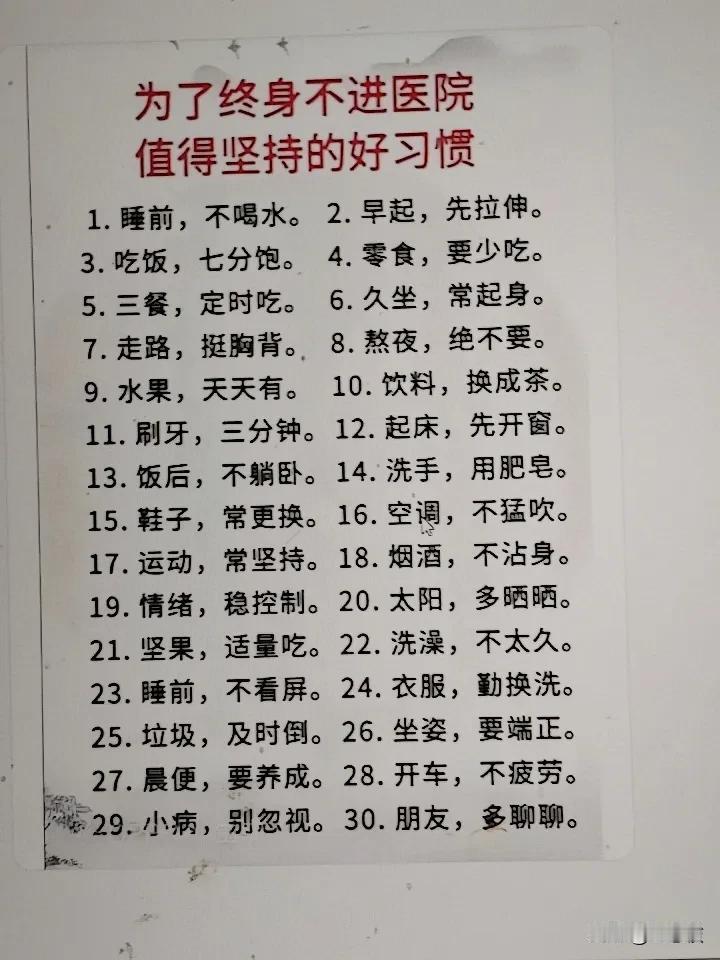 为了终身不进医院
值得坚持的好习惯
1. 睡前，不喝水。 2. 早起，先拉伸。
3. 吃饭，七分饱。 4. 零食，要少吃。
5. 三餐，定时吃。 6. 久坐，常起身。
7. 走路，挺胸背。 8. 熬夜，绝不要。
9. 水果，天天有。 10. 饮料，换成茶。
11. 刷牙，三分钟。 12. 起床，先开窗。
13. 饭后，不躺卧。 14. 洗手，用肥皂。
15. 鞋子，常更换。 16. 空调，不猛吹。
17. 运动，常坚持。 18. 烟酒，不沾身。
19. 情绪，稳控制。 20. 太阳，多晒晒。
21. 坚果，适量吃。 22. 洗澡，不太久。
23. 睡前，不看屏。 24. 衣服，勤换洗。
25. 垃圾，及时倒。 26. 坐姿，要端正。
27. 晨便，要养成。 28. 开车，不疲劳。
29. 小病，别忽视。 30. 朋友，多聊聊。